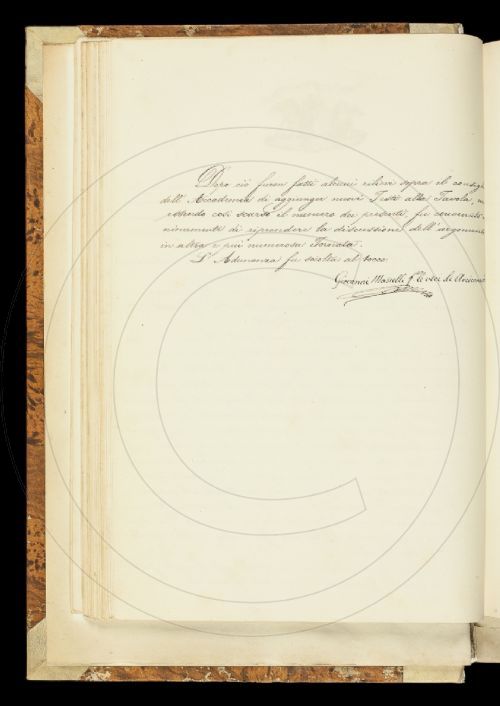 Dopo ciò furon fatti alcuni rilievi sopra il
dell' Accademia di aggiunger nuovi Testi alla Tavola,
essendo così scarso il numero dei presenti, fu
di riprendere la discussione dell' argomento
in altra e più numerosa Tornata.
L' Adunanza fu sciolta al tocco.
Giovanni Masselli